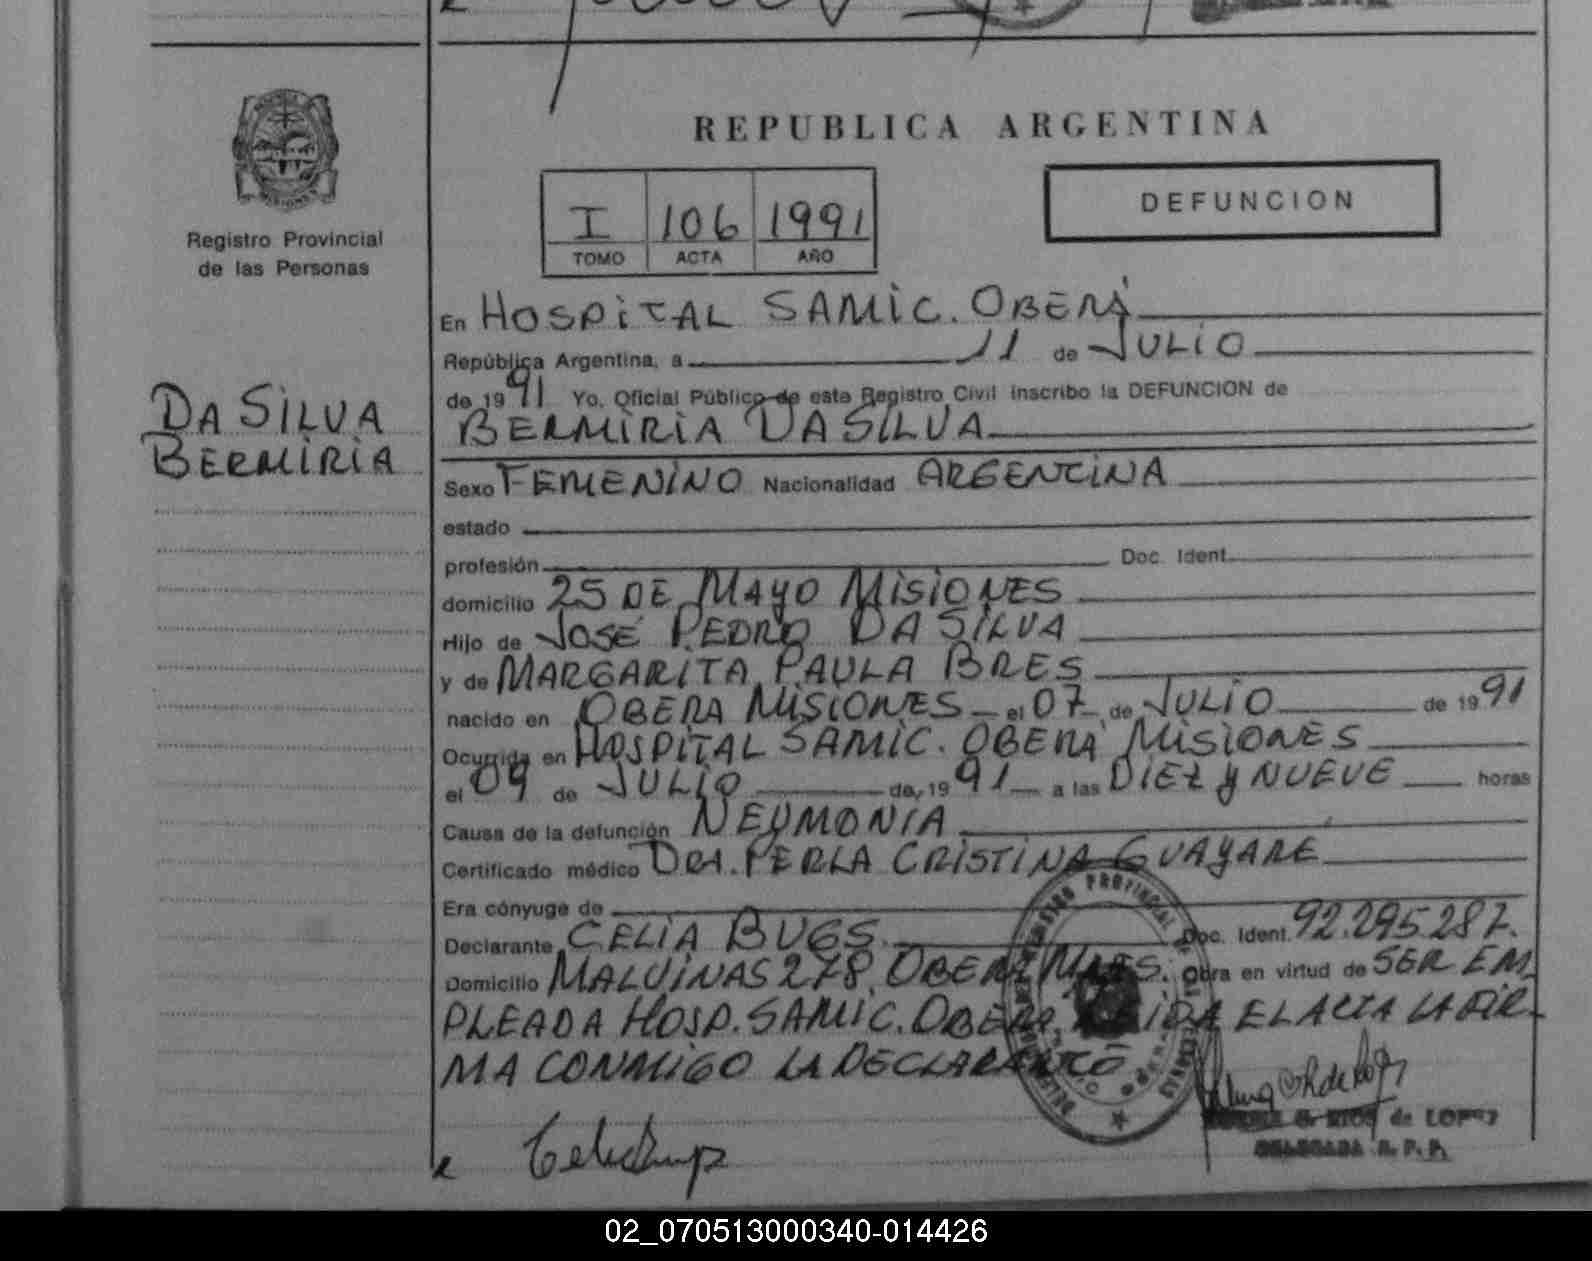 REPUBLICA ARGENTINA
I 106 1991
TOMO ACTA AÑO
DEFUNCION
Registro Provincial
de las Personas
DA SILVA
BERMIRIA
En HOSPITAL SAMIC. OBERÁ
República Argentina, a 11 de JULIO
de 1991 Yo, Oficial Público de este Registro Civil inscribo la DEFUNCION de
BERMIRIA DA SILVA
Sexo FEMENINO Nacionalidad ARGENTINA
estado
profesión Doc. Ident.
domicilio 25 DE MAYO MISIONES
Hijo de JOSÉ PEDRO DA SILVA
y de MARGARITA PAULA BRES
nacido en OBERA MISIONES el 07 de JULIO de 1991
Ocurrida en HOSPITAL SAMIC. OBERÁ MISIONES
el 09 de JULIO de 1991 a las DIEZ Y NUEVE horas
Causa de la defunción NEUMONIA
Certificado médico DRA. PERLA CRISTINA GUAYARE
Era cónyuge de
Declarante CELIA BUGS Doc. Ident. 92.295.287.
Domicilio MALVINAS 278. OBERA MNES. Obra en virtud de SER EM
PLEADA HOSP. SAMIC. OBERA. LEIDA EL ACTA LA FIR-
MA CONMIGO LA DECLARANTE
de LOPEZ
DELEGADA R. P. P.
02_070513000340-014426